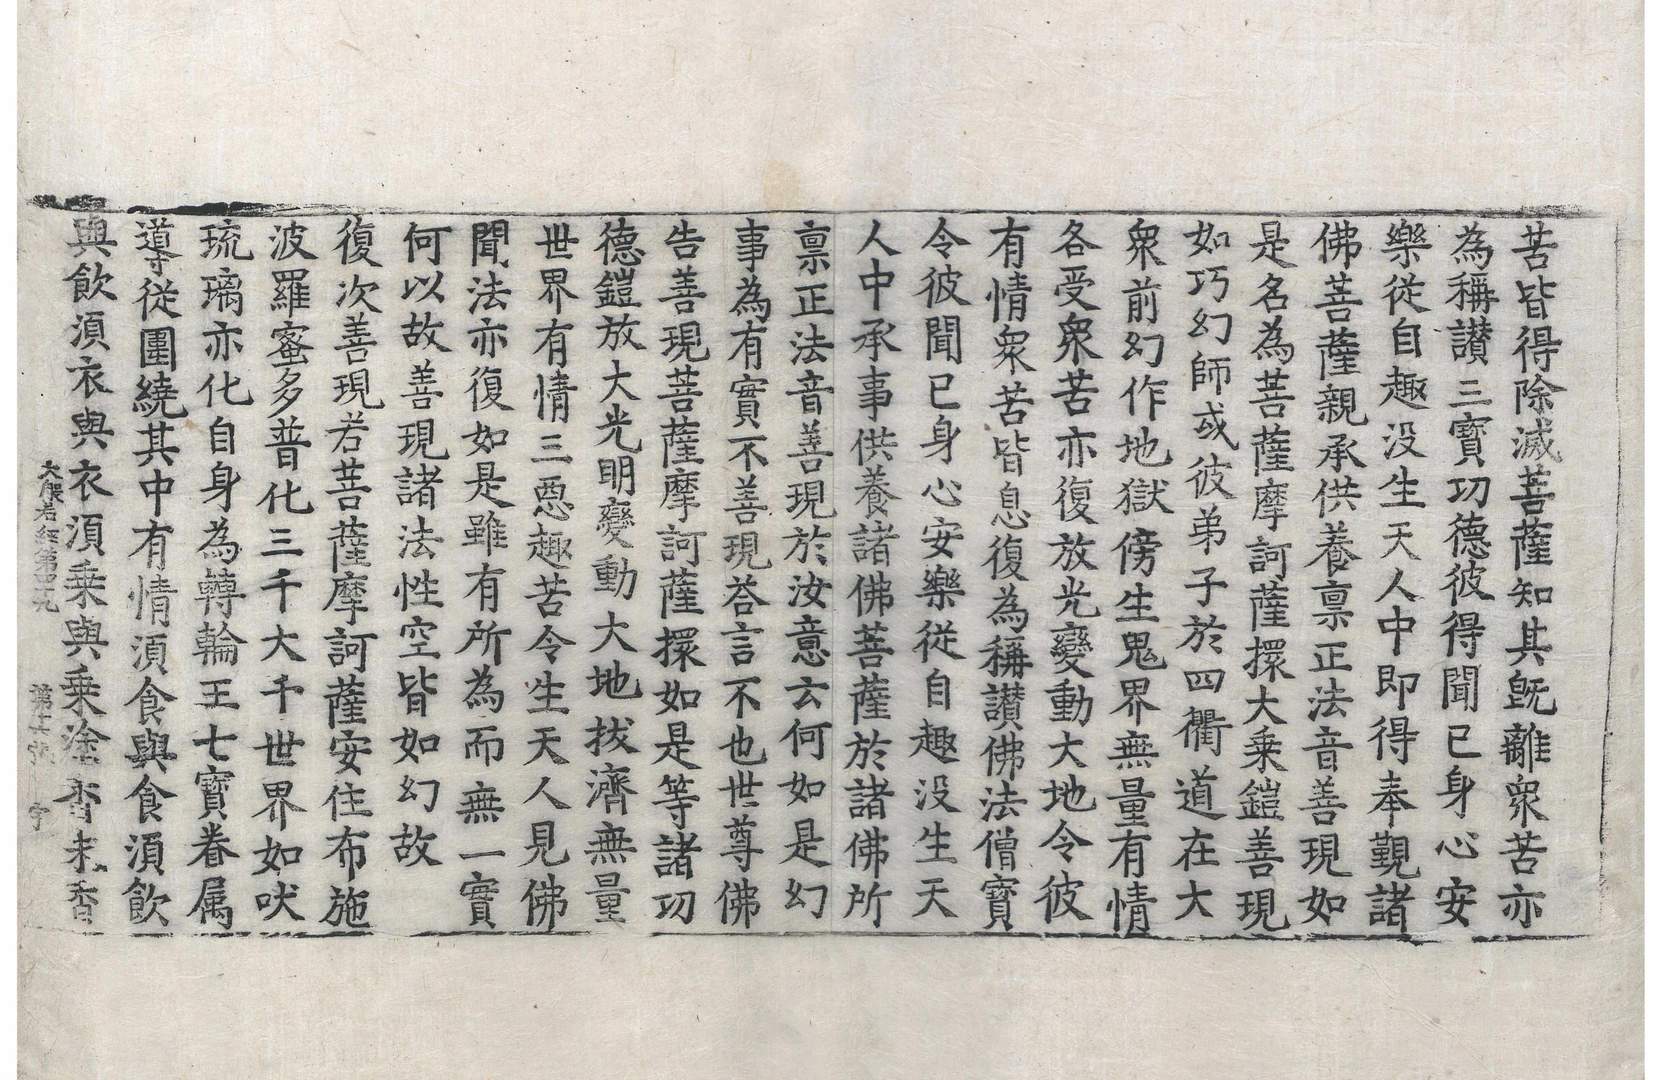 苦皆得除滅菩薩知其旣離衆苦亦
為稱讃三寶功德彼得聞已身心安
樂從自趣没生天人中即得奉覲諸
佛菩薩親承供養禀正法音善現如
是名為菩薩摩訶薩擐大乗鎧善現
如巧幻師或彼弟子於四衢道在大
衆前幻作地獄傍生鬼界無量有情
各受衆苦亦復放光變動大地令彼
有情衆苦皆息復為稱讃佛法僧寶
令彼聞已身心安樂從自趣没生天
人中承事供養諸佛菩薩於諸佛所
禀正法音善現於汝意云何如是幻
事為有實不善現荅言不也世尊佛
告善現菩薩摩訶薩擐如是等諸功
德鎧放大光明變動大地拔濟無量
世界有情三惡趣苦令生天人見佛
聞法亦復如是雖有所為而無一實
何以故善現諸法性空皆如幻故
復次善現若菩薩摩訶薩安住布施
波羅蜜多普化三千大千世界如吠
琉璃亦化自身為轉輪王七寶眷属
導從圍繞其中有情湏食與食湏飮
與飮湏衣與衣湏乗與乗塗香末香
大般若經第四九 第十張 字